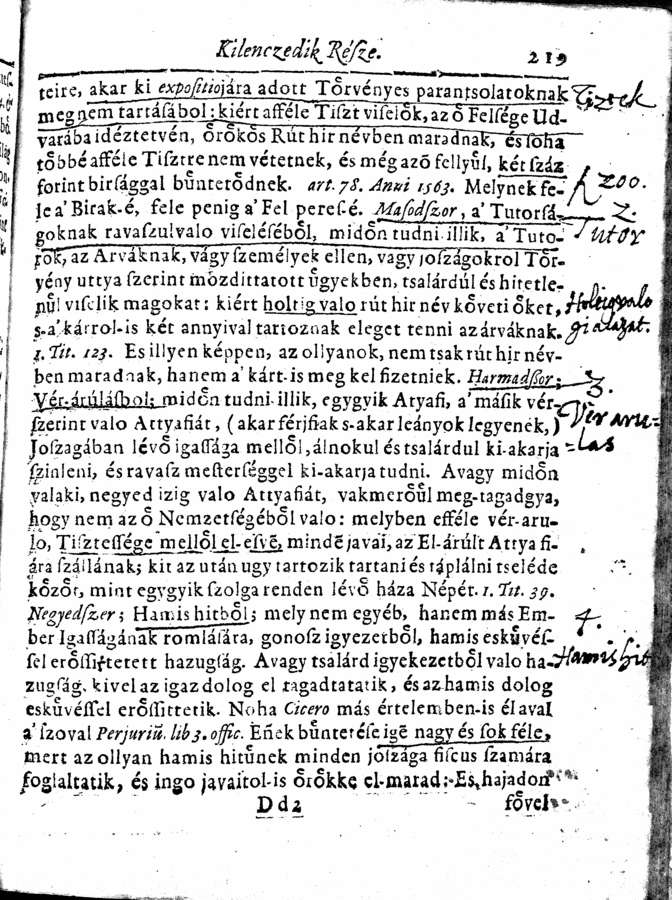 Kilenczedik Réſze. 219
teire, akar ki expoſitiojára adott Tőrvényes parantsolatoknak Tiztek
meg nem tartáſából: kiért afféle Tiſzt viſelők, az ő Felſége Ud-
varába idéztetvén, őrőkős Rút hir névben maradnak, és ſoha
tőbbé afféle Tiſztre nem vétetnek, és még aző fellyűl, két ſzáz
forint birſággal bűntetődnek. art. 78. Anni 1563. Melynek fe- 200.
le a' Birak-é, fele penig a' Fel pereſ-é. Máſodſzor, a' Tutorſá- 2.
goknak ravaſzul való viſeléſéből, midőn tudni illik, a' Tuto- Tutor
rok, az Arváknak, vágy ſzemélyek ellen, vagy joſzágokról Tőr-
vény uttya ſzerint mozdittatott űgyekben, tsalárdúl és hitetle-
nűl viſelik magokat: kiért holtig való rút hir név kőveti őket, Holtigvalo
s-a' kárról-is két annyival tartoznak eleget tenni az árváknak. gialazat.
1. Tit. 123. Es illyen képpen, az ollyanok, nem tsak rút hir név-
ben maradnak, hanem a' kárt-is meg kel fizetniek. Harmadſzor; 3.
Vér-árúláſból; midőn tudni illik, egygyik Atyafi, a' máſik vér-
ſzerint való Attyafiát, (akar férjfiak s-akar leányok legyenek,) Vir aru=
Joſzagában lévő igaſſága mellől, álnokul és tsalárdul ki-akarja =las
ſzinleni, és ravaſz meſterſéggel ki-akarja tudni. Avagy midőn
valaki, negyed izig való Attyafiát, vakmerőűl meg-tagadgya,
hogy nem az ő Nemzetſégéből való: melyben efféle vér-aru-
ló, Tiſzteſſége mellől el-eſvē, mindē javai, az El-árúlt Attya fi-
ára ſzállanak; kit az után ugy tartozik tartani és táplálni tseléde
kőzőt, mint egygyik ſzolga renden lévő háza Népét. 1. Tit. 39.
Negyedſzer; Hamis hitből; mely nem egyéb, hanem más Em- 4.
ber Igaſſágának romláſára, gonoſz igyezetből, hamis eskűvéſ-
ſel erőſſitetett hazugſág. Avagy tsalárd igyekezetből való ha- Hamis hit
zugſág, kivel az igaz dolog el tagadtatatik, és az hamis dolog
eskűvéſſel erőſſittetik. Noha Cicero más értelemben-is él aval
a' ſzoval Perjuriū. lib 3. offic. Eñek bűntetéſe igē nagy és ſok féle,
mert az ollyan hamis hitűnek minden jóſzága fiſcus ſzamára
foglaltatik, és ingo javaitol-is őrőkké el-marad: Es, hajadon
Dd2 fővel